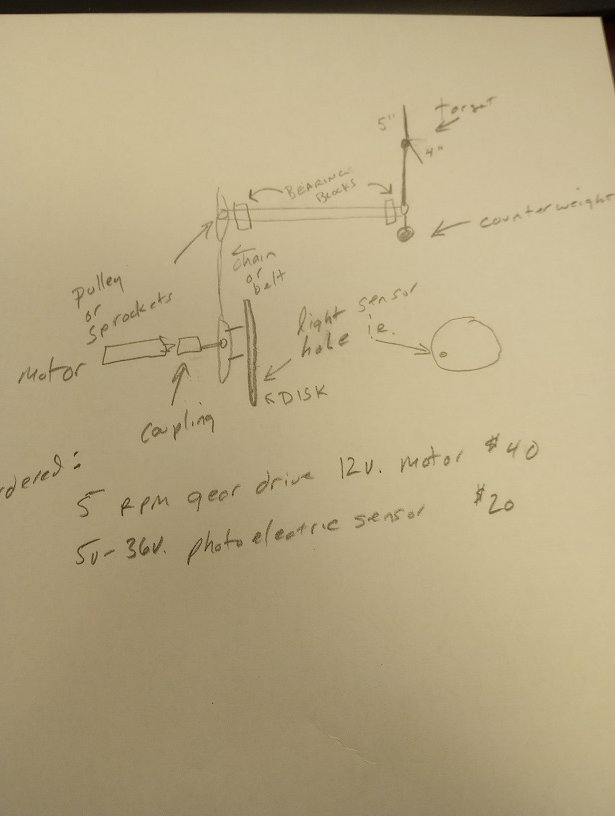 target
5"
4"
BEARING
Blocks
counterweight
chain
or
belt
Pulley
or
Sprockets
light sensor
hole i.e.
Motor
DISK
Coupling
rdered:
5 RPM gear drive 12v. motor $40
5v-36v. photoelectric sensor $20